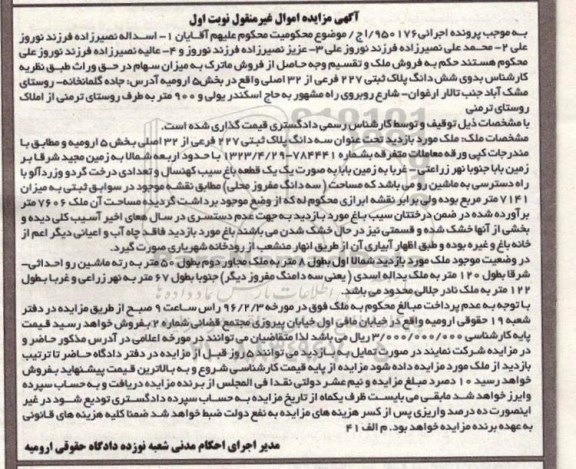 آگهی مزایده اموال غیرمنقول نوبت اول
به موجب پرونده اجرائی ۹۵۰۱۷۶/اج/ موضوع محکومیت محکوم علیهم آقایان ۱- اسداله نصیرزاده فرزند نوروز
علی ۲- محمد علی نصیرزاده فرزند نوروز علی ۳- عزیز نصیرزاده فرزند نوروز و ۴- عالیه نصیرزاده فرزند نوروز علی
محکوم هستند حکم به فروش ملک و تقسیم وجه حاصل از فروش ماترک به میزان سهام در حق وراث طبق نظریه
کارشناس بدوی شش دانگ پلاک ثبتی ۲۲۷ فرعی از ۳۲ اصلی واقع در بخش ۵ ارومیه آدرس: جاده گلمانخانه- روستای
مشک آباد جنب تالار ارغوان- شارع روبروی راه مشهور به حاج اسکندر یولی و ۹۰۰ متر به طرف روستای ترمنی از املاک
روستای ترمنی
با مشخصات ذیل توقیف و توسط کارشناس رسمی دادگستری قیمت گذاری شده است.
مشخصات ملک: ملک مورد بازدید تحت عنوان سه دانگ پلاک ثبتی ۲۲۷ فرعی از ۳۲ اصلی بخش ۵ ارومیه و مطابق با
مندرجات کپی ورقه معاملات متفرقه بشماره ۷۸۴۴۴۱-۱۳۲۳/۴/۲۹ با حدود اربعه شمالا به زمین مجید شرقا بر
زمین بابا جنوبا نهر زراعتی- غربا به زمین بابا به صورت یک یک قطعه باغ سیب کهنسال و تعدادی درخت گردو وزردآلو با
راه دسترسی به ماشین رو می باشد که مساحت (سه دانگ مفروز محلی) مطابق نقشه موجود در سوابق ثبتی به میزان
۷۱۴۱ متر مربع بوده ولی برابر نقشه ابرازی محکوم له که از وضع موجود برداشت گردیده مساحت آن ملک ۷۶۰۶ متر
برآورده شده در ضمن درختان سیب باغ مورد بازدید به جهت عدم دسترسی در سال های اخیر آسیب کلی دیده و
بخشی از آنها خشک شده و قسمتی نیز در حال خشک شدن می باشند باغ مورد بازدید فاقد چاه آب و اعیانی دیگر اعم از
خانه باغ و غیره بوده و طبق اظهار آبیاری آن از طریق انهار منشعب از رودخانه شهریاری صورت گیرد.
در وضعیت موجود ملک مورد بازدید شمالا اول بطول ۸ متر به ملک مجاور دوم بطول ۵۰ متر به رته ماشین رو احداثی-
شرقا بطول ۱۲۰ متر به ملک یداله اسدی (یعنی سه دامنگ مفروز دیگر) جنوبا بطول ۶۷ متر به نهر زراعی و غربا بطول
۱۲۲ متر به ملک نادر جلالی محدود می باشد.
با توجه به عدم پرداخت مبالغ محکوم به ملک فوق در مورخه ۹۶/۲/۳ راس ساعت ۹ صبح از طریق مزایده در دفتر
شعبه ۱۹ حقوقی ارومیه واقع در خیابان مافی اول خیابان پیروزی مجتمع قضائی شماره ۲ بفروش خواهد رسید قیمت
پایه کارشناسی ۳/۰۰۰/۰۰۰/۰۰۰ ریال می باشد لذا متقاضیان می توانند در مورخه اعلامی در آدرس مذکور حاضر و
در مزایده شرکت نمایند در صورت تمایل به بازدید می توانند ۵ روز قبل از مزایده در دفتر دادگاه حاضر تا ترتیب
بازدید از ملک مورد مزایده داده شود مزایده از پایه قیمت کارشناسی شروع و به بالاترین قیمت پیشنهاد بفروش
خواهد رسید ۱۰ دصرد مبلغ مزایده و نیم عشر دولتی نقدا فی المجلس از برنده مزایده دریافت و به حساب سپرده
وایرز خواهد شد مابقی می بایست ظرف یکماه از تاریخ مزایده به حساب سپرده دادگستری تودیع شود در غیر
اینصورت ده درصد واریزی پس از کسر هزینه های مزایده به نفع دولت ضبط خواهد شد ضمنا کلیه هزینه های قانونی
به عهده برنده مزایده خواهد بود. م الف ۴۱
مدیر اجرای احکام مدنی شعبه نوزده دادگاه حقوقی ارومیه